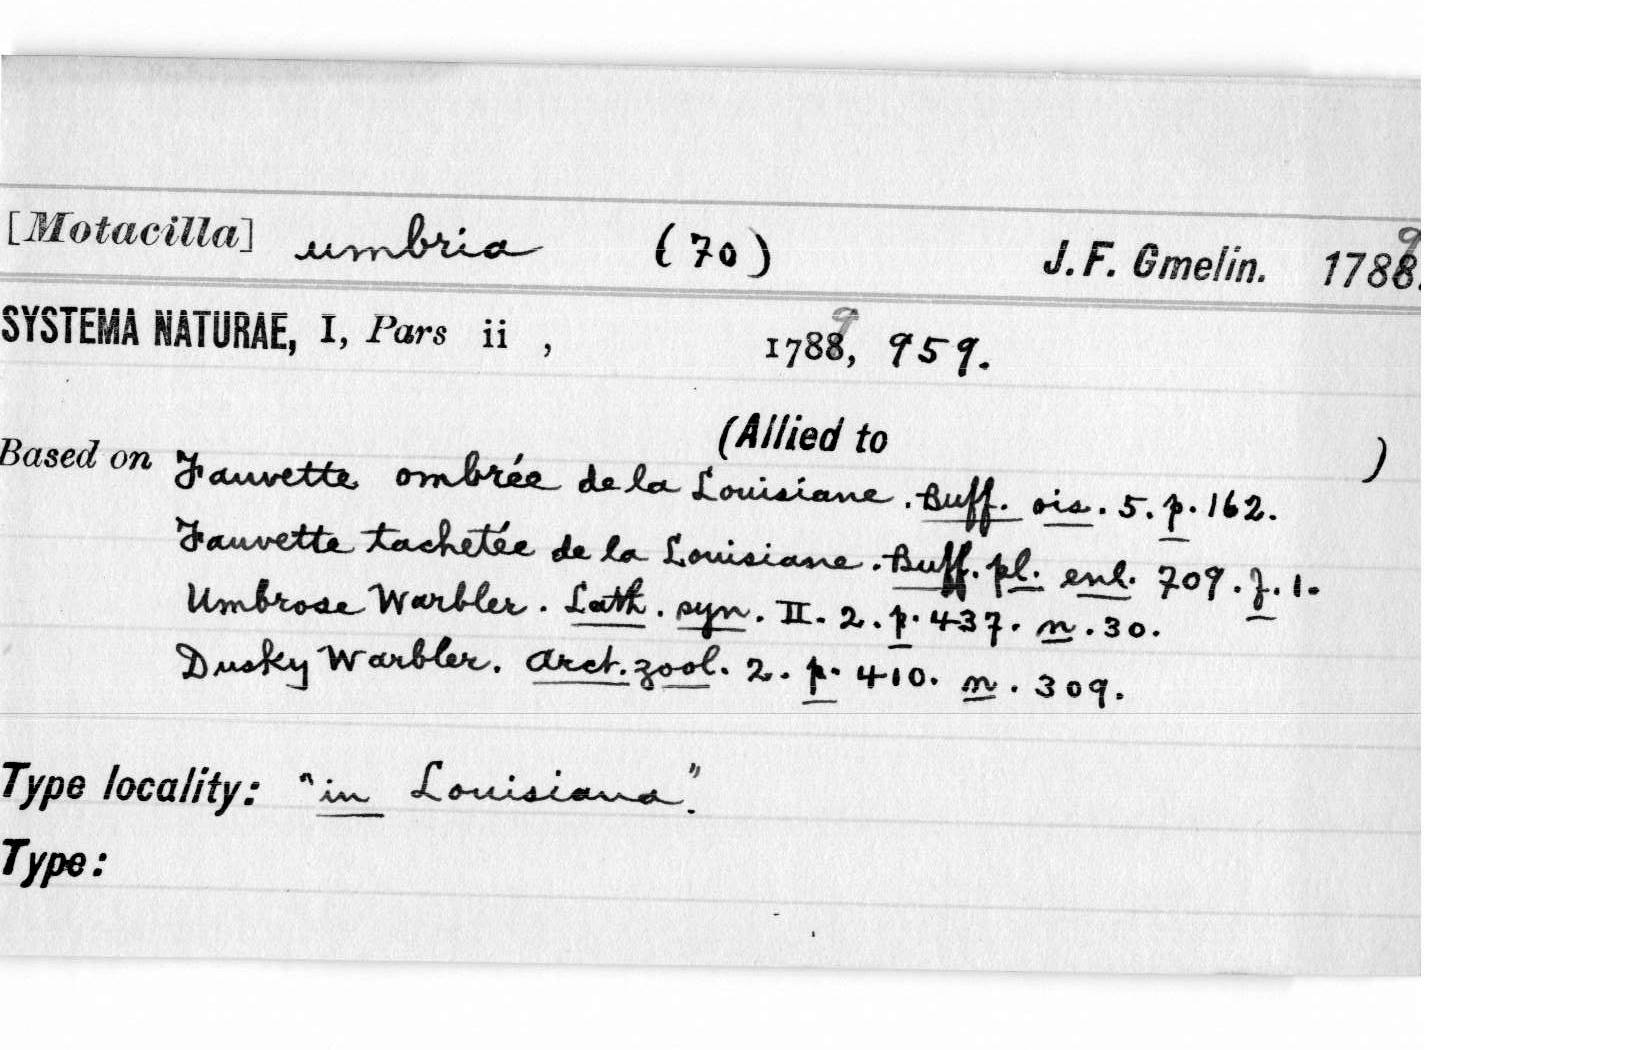 [Motacilla] umbria (70) J. F. Gmelin. 1788. 9
SYSTEMA NATURAE, I, Pars ii , 1788, 9 959.
(Allied to )
Based on Fauvette ombrée de la Louisiane . Buff. ois. 5. p. 162.
Fauvette tachetée de la Louisiane . Buff. pl. enl. 709. f. 1.
Umbrose Warbler . Lath. syn. II. 2. p. 437. n. 30.
Dusky Warbler. Arct. zool. 2. p. 410. n. 309.
Type locality: "in Louisiana".
Type: